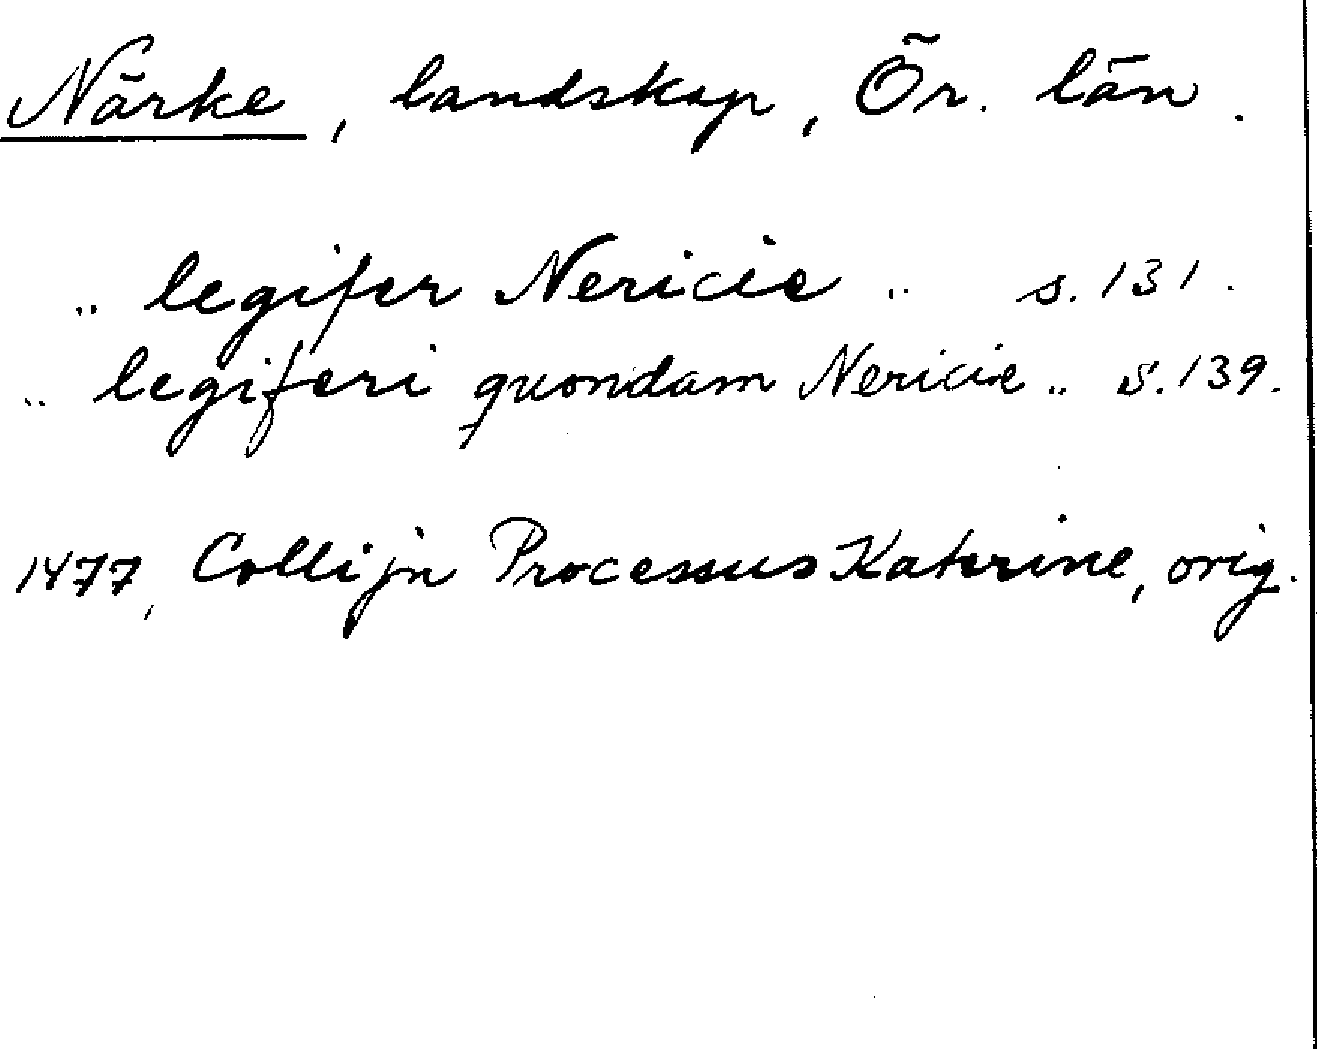 Närke, landskap, Ör. län.
.. legifer Nericie .. s. 131.
.. legiferi quondam Nericie .. s. 139.
1477, Collijn Processus Katerine, orig.